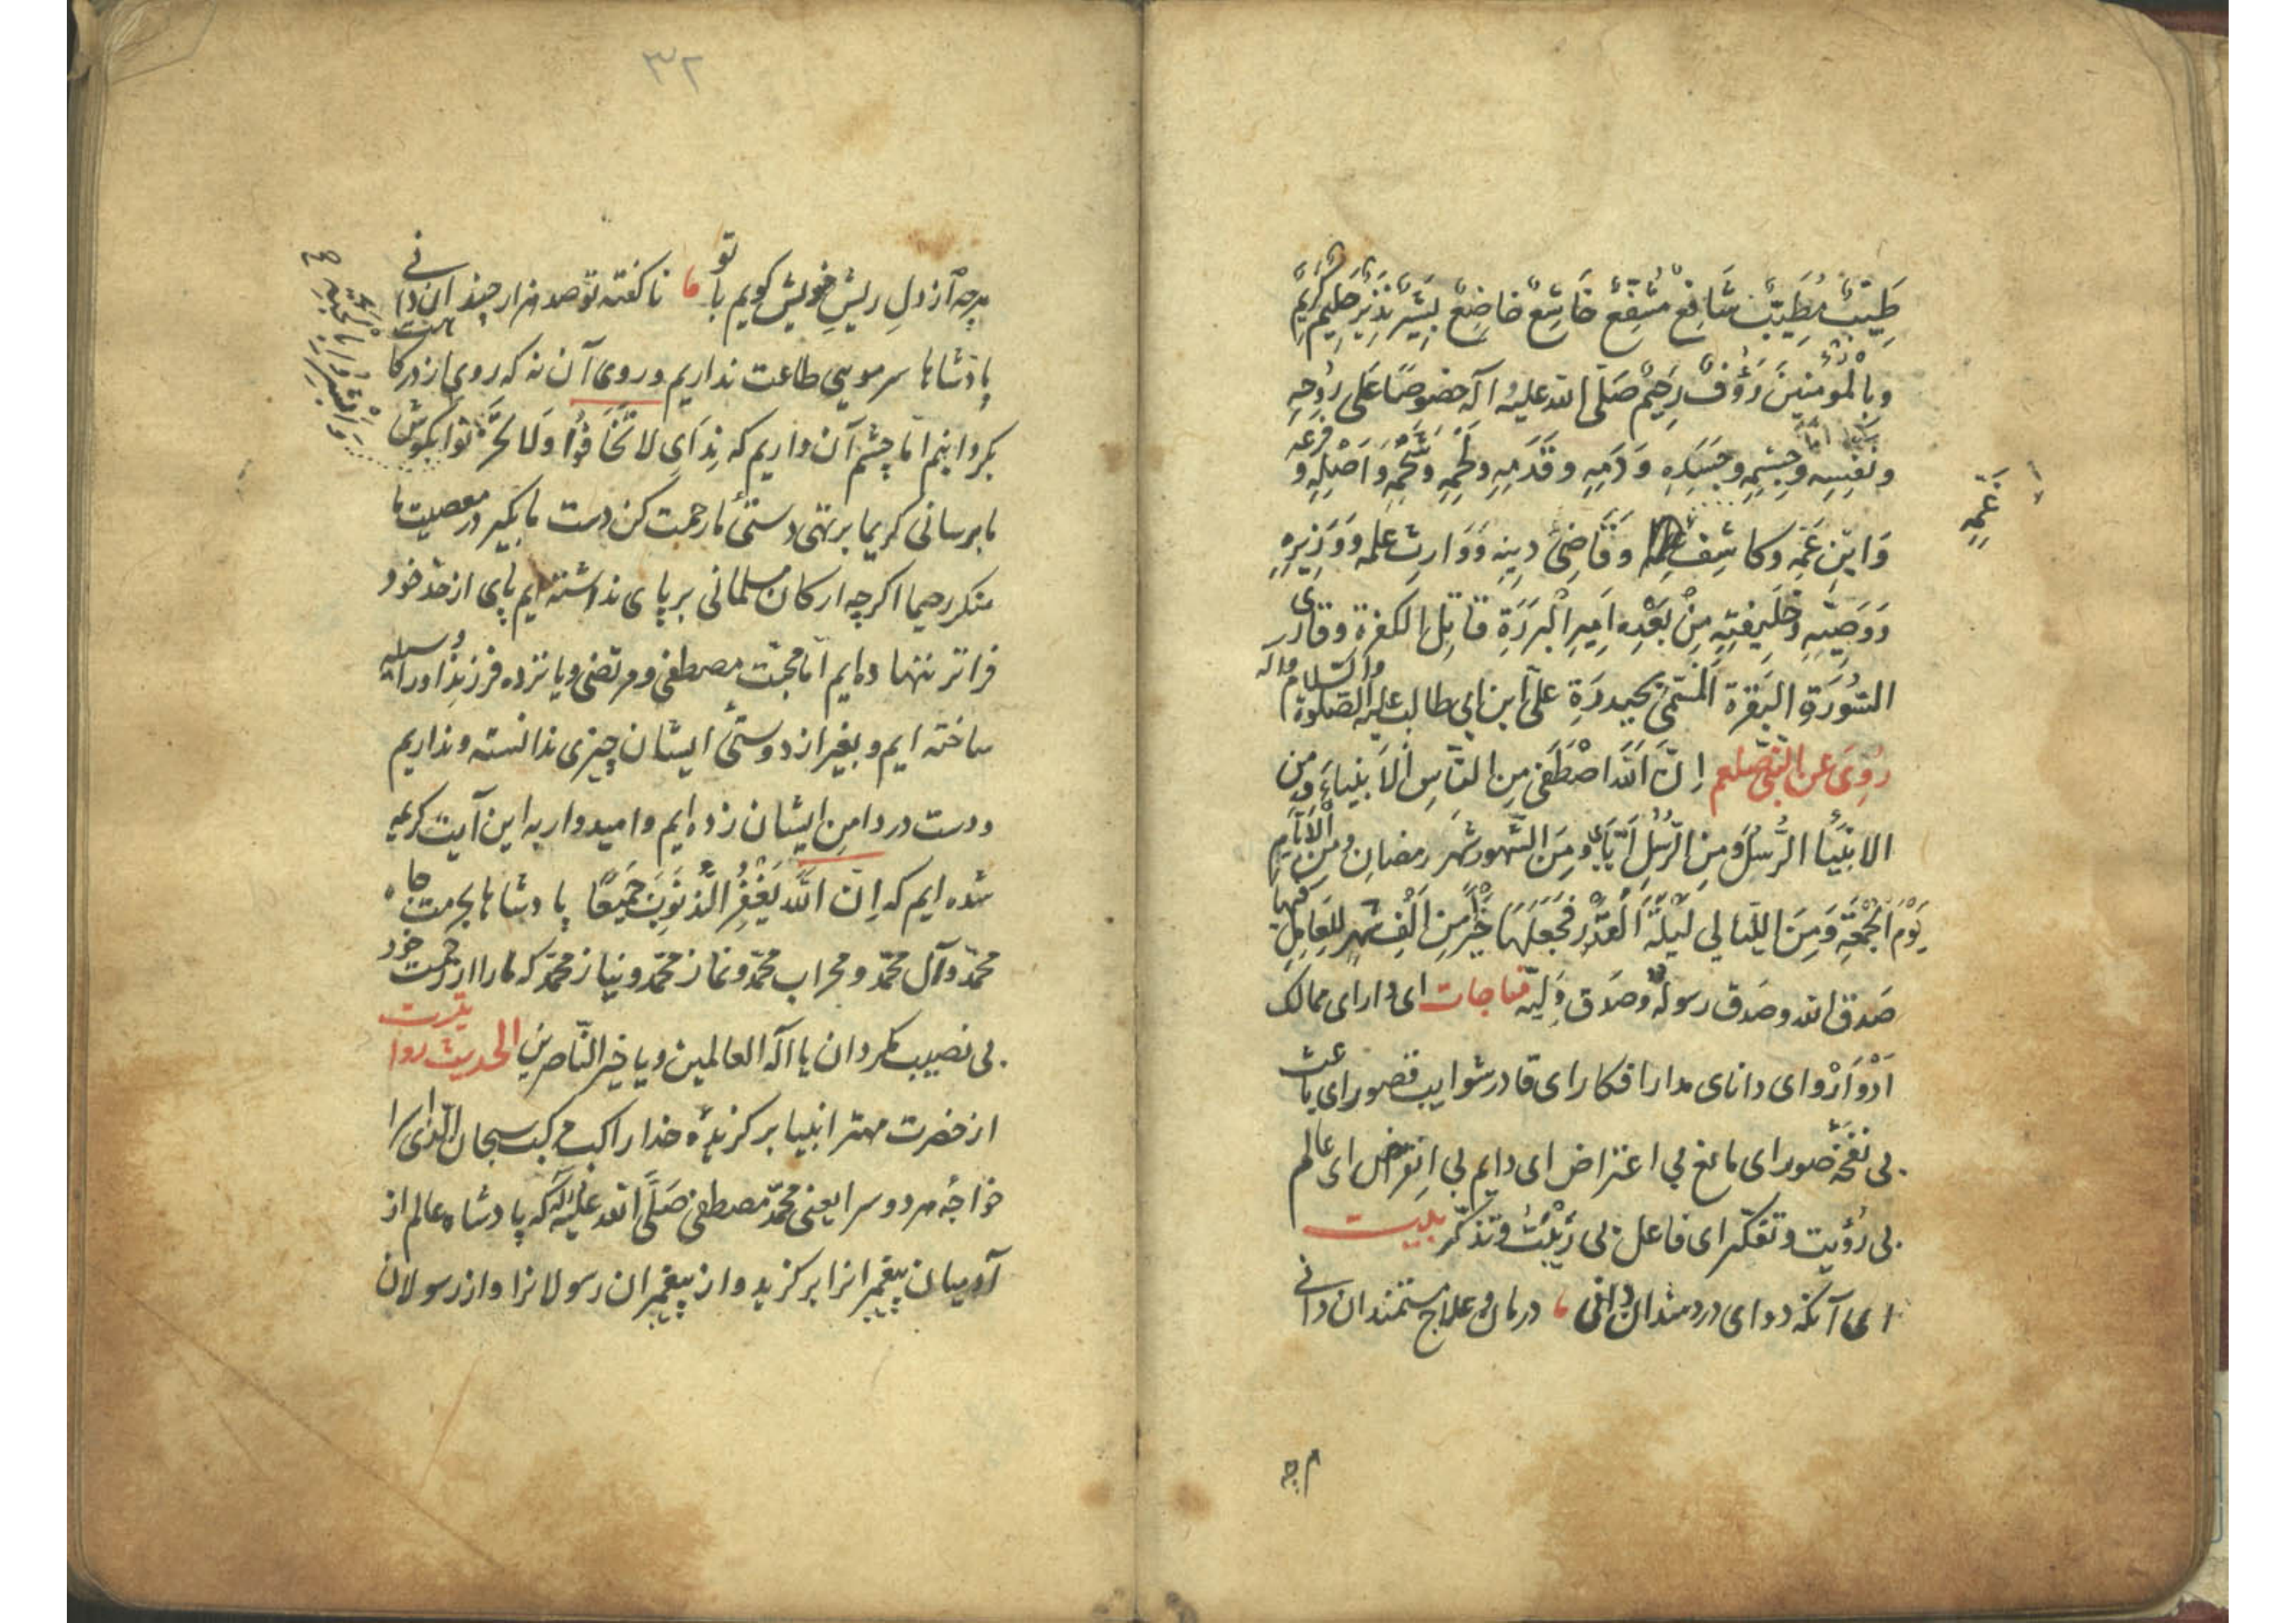 طَیِّبٌ مُطَیَّبٌ شَافِعٌ مُشَفَّعٌ خَاشِعٌ خَاضِعٌ بَشِیرٌ نَذِیرٌ حَلِیمٌ کَرِیمٌ
وبِالْمُؤْمِنِینَ رَؤُفٌ رَحِیمٌ صَلّی الله علیه وآله خصوصًا عَلی رُوحِهِ
ونَفْسِهِ وجِسْمِهِ وجَسَدِهِ وَدَمِهِ وقَدَمِهِ ولَحْمِهِ وشَحْمِهِ وَاَصْلِهِ و فرعه
وَابْنِ عَمِّهِ وکاشِفِ وَقَاضِئِ دِینِهِ وَوَارِثِ عِلْمِه وَوَزِیرِهِ
غَمِّهِ
وَوَصِیِّهِ وخَلِیفَتِهِ مِنْ بَعْدِه اَمِیرِ الْبَرَرَةِ قاتِلِ الکفرة وقاری
السُّورَةِ البَقَرَة المُسَمّیٰ بحیدرَةِ علی ابن ابی طالب علیه الصلوة والسلام وآله
رُوِیَ عَن النَّبِیّ صلعم اِنَّ اللهَ اصْطَفیٰ مِن النّاسِ الاَنبیاءَ ومِن
الانبیَاء الرُّسُلَ ومِنَ الرُّسُلِ اَنَا ومِنَ الشّهور شهر رمضان ومِنَ الاَیّامِ
یَوْمَ الجُمْعَةِ وَمِنَ اللیَالی لَیْلَةَ القَدْرِ فجَعَلَهَا خَیْرٌ مِن اَلْفِ شهرٍ للعَامِلِ فیها
صَدق الله وصَدق رسوله وصَدق وَلیّه مناجات ای دارای ممالک
اَدْوَارْ وای دانای مدار افکار ای قادر شوایب قصور ای باعث
بی نَفْخَهٔ صُور ای مانع بی اعتراض ای دایم بی اِنقراض ای عالم
بی رُؤیت وتفکّر ای فاعل بی رَیْبَت وتذکّر بیت
ای آنکه دوای دردمندان دانی درمان وعلاج مستمندان دانی
هرچه
۳۲
هرچه از دلِ ریشِ خویش کویم با تو ناکفته تو صد هزار چندان دانی
پادشاها سر مویی طاعت نداریم وروی آن نه که روی از درکاهت
بکردانیم امّا چشم آن داریم که نِدَایِ لا تَخَافُوا وَلا تحزنوا بکوش
مابرسانی کریما بر تهی دستیٔ ما رحمت کن دست مابکیر در معصیت ما
منکر رحیما اکرچه ارکان مسلمانی برپای نداشته‌ایم پای از حدّ خود
فراتر نهاده ایم امّا محبّت مصطفی ومرتضی ویازده فرزندِ او را وسیله
ساخته ایم وبغیر از دوستیٔ ایشان چیزی ندانسته ونداریم
ودست در دامنِ ایشان زده ایم وامیدوار به این آیت کریمه
شده ایم که اِنّ اللهَ یَغْفِرُ الذُّنُوبَ جَمِیعًا پادشاها بحرمت جاه
محمّد وآل محمّد ومحراب محمّد ونماز محمّد ونیاز محمّد که مارا از رحمت خود
بی نصیب مکردان یا اله العالمین ویا خیر النّاصرین الحدیث روایتست
از حضرت مهتر انبیا برکزیدهٔ خدا راکب مرکب سبحان الّذی اسرا
خواجهٔ هر دو سرا یعنی محمّد مصطفی صَلَّی الله علیه وآله که پادشاه عالم از
آدمیان پیغمبرانرا برکزید واز پیغمبران رسولانرا واز رسولان